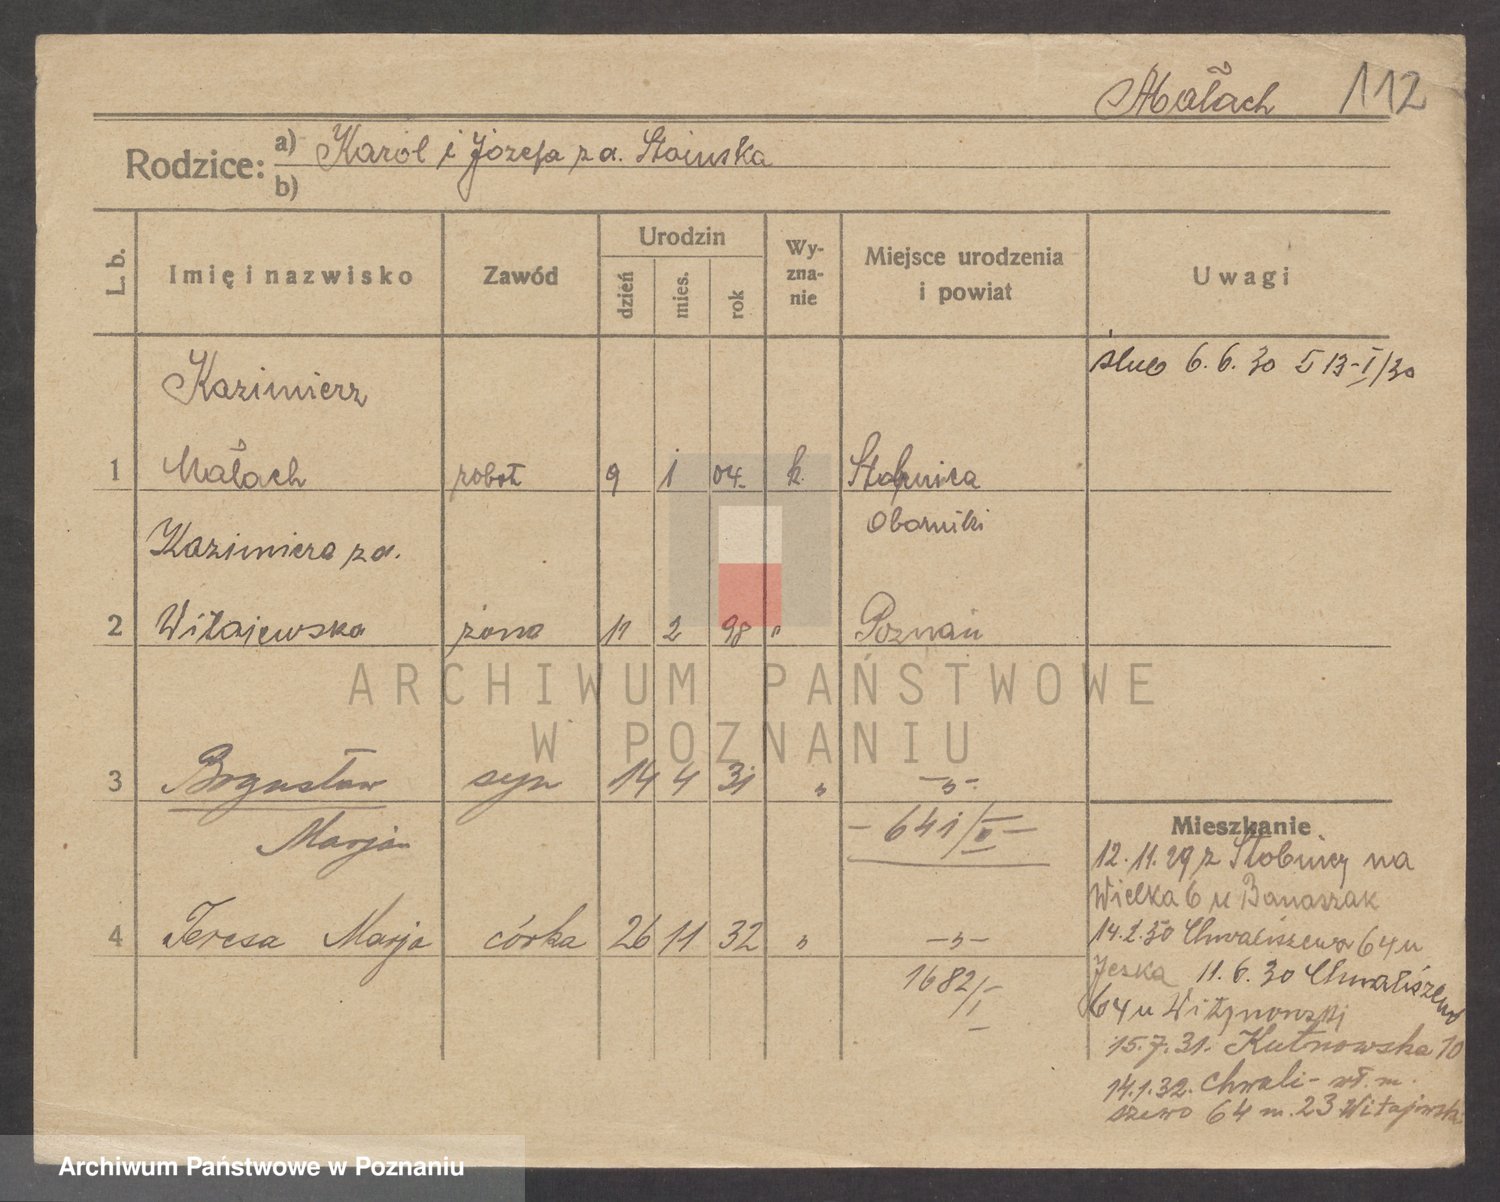 Małach 112
Rodzice: a) Karol i Józefa z d. Stoinska
b)
L. b.
Imię i nazwisko
Zawód
Urodzin
dzień
mies.
rok
Wy-
zna-
nie
Miejsce urodzenia
i powiat
Uwagi
ślub 6. 6. 30 I/30
Kazimierz
1 Małach robot 9 1 04. k. Stobnica
Oborniki
Kazimiera z d.
2 Witajewska żona 11 2 98 " Poznań
3 Bogusław syn 14 4 31 " -"-
Marjan - 641/II -
4 Teresa Marja córka 26 11 32 " -"-
1682/I
Mieszkanie
12. 11. 29 z Stobnicy na
Wielka 6 u Banaszak
14.2.30 Chwaliszewo 64 u
Jeska 11. 6. 30 Chwaliszewo
64 u
15.7.31. Kutnowska 10
14.1.32. Chwali- wł. m.
szewo 64 m. 23 Witajewska
ARCHIWUM PAŃSTWOWE
W POZNANIU
Archiwum Państwowe w Poznaniu